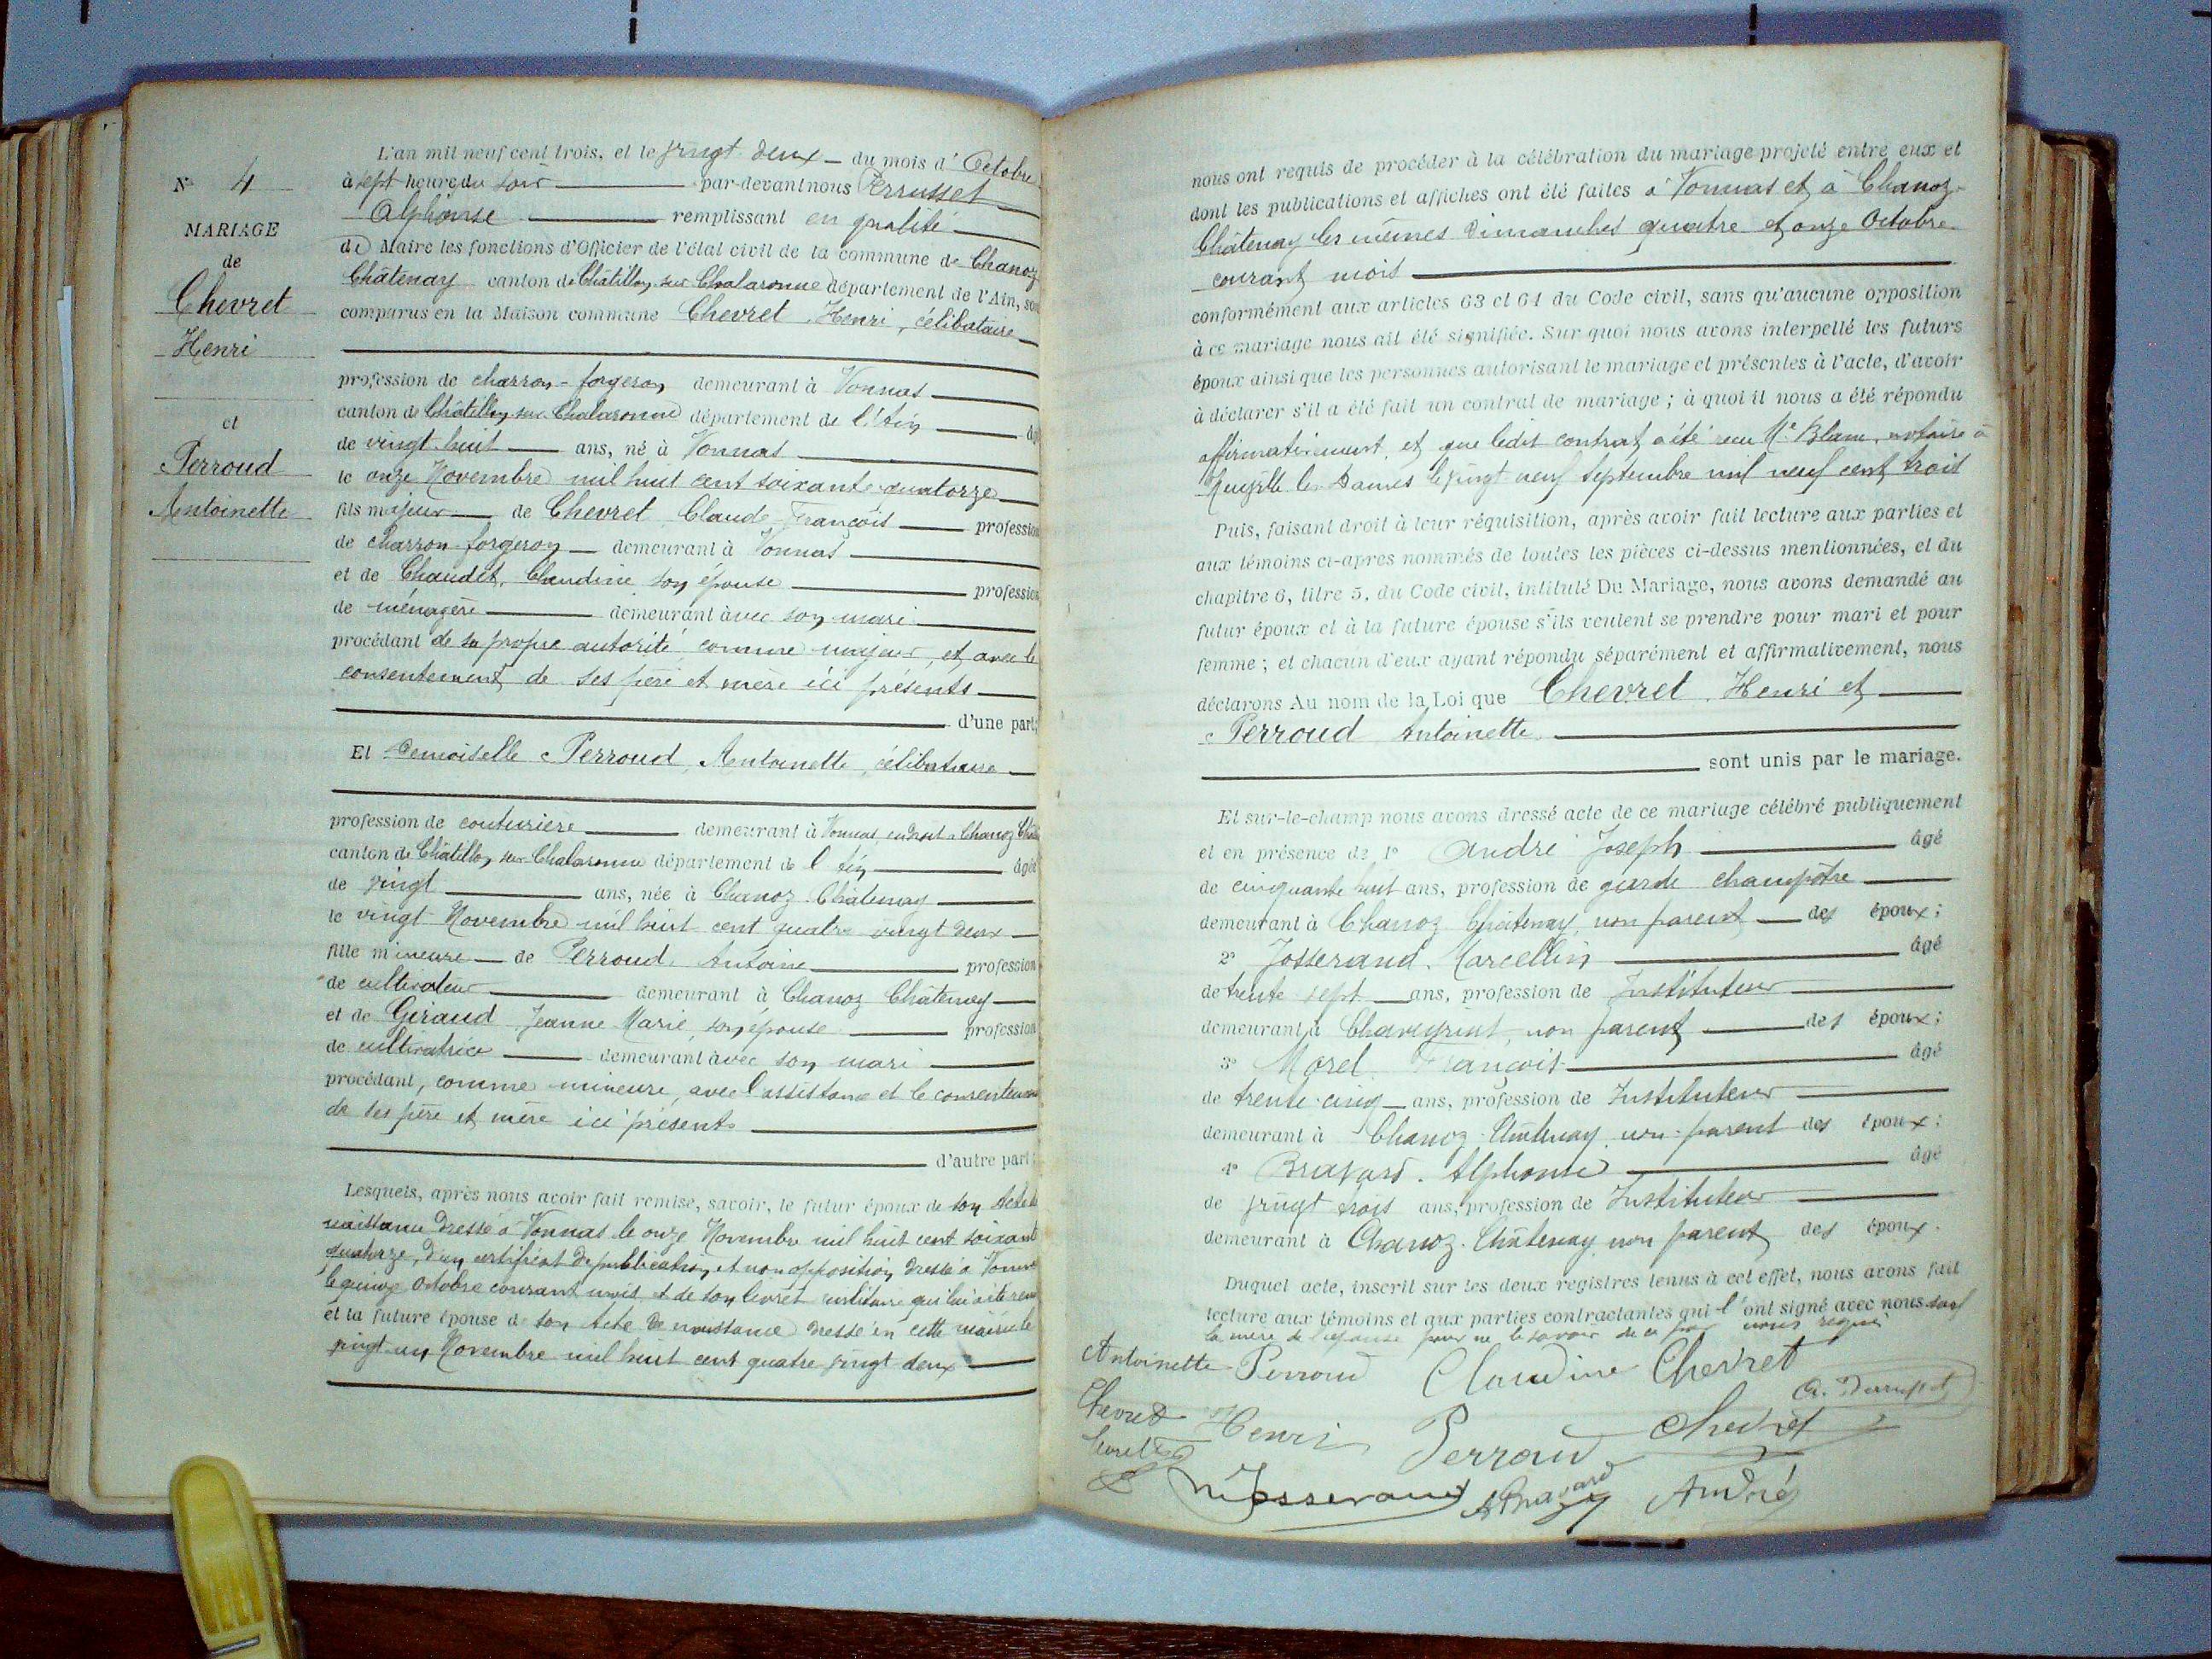 N° 4
MARIAGE
de
Chevret
Henri
et
Perroud
Antoinette
L'an mil neuf cent trois, et le vingt deux du mois d'Octobre
à sept heure du soir par-devant nous Perrusset
Alphonse remplissant en qualité
de Maire les fonctions d'Officier de l'état civil de la commune de Chanoz
Châtenay canton de Châtillon sur Chalaronne département de l'Ain, son
comparus en la Maison commune Chevret, Henri, célibataire
profession de charron-forgeron demeurant à Vonnas
canton de Châtillon sur Chalaronne département de l'Ain âg
de vingt huit ans, né à Vonnas
le onze Novembre mil huit cent soixante quatorze
fils majeur de Chevret Claude François profession
de charron-forgeron demeurant à Vonnas
et de Chaudet, Claudine son épouse profession
de ménagère demeurant avec son mari
procédant de sa propre autorité comme majeur, et avec le
consentement de ses père et mère ici présents
d'une part;
Et Demoiselle Perroud, Antoinette, célibataire
profession de couturière demeurant à Vonnas, en droit à Chanoz Chât
canton de Châtillon sur Chalaronne département de l'Ain âgée
de vingt ans, née à Chanoz-Châtenay
le vingt Novembre mil huit cent quatre vingt deux
fille mineure de Perroud, Antoine profession
de cultivateur demeurant à Chanoz Châtenay
et de Giraud Jeanne Marie, son épouse profession
de cultivatrice demeurant avec son mari
procédant, comme mineure, avec l'assistance et le consentement
de ses père et mère ici présents
d'autre part;
Lesquels, après nous avoir fait remise, savoir, le futur époux de son Acte de
naissance dressé à Vonnas le onze Novembre mil huit cent soixante
quatorze, d'un certificat de publication et non opposition dressé à Vonnas
le quinze Octobre courant mois et de son livret militaire qui lui a été ren
et la future épouse de son Acte de naissance dressé en cette mairie le
vingt un Novembre mil huit cent quatre vingt deux
nous ont requis de procéder à la célébration du mariage projeté entre eux et
dont les publications et affiches ont été faites à Vonnas et à Chanoz-
Châtenay les mêmes Dimanches quatre et onze Octobre
courant mois
conformément aux articles 63 et 64 du Code civil, sans qu'aucune opposition
à ce mariage nous ait été signifiée. Sur quoi nous avons interpellé les futurs
époux ainsi que les personnes autorisant le mariage et présentes à l'acte, d'avoir
à déclarer s'il a été fait un contrat de mariage; à quoi il nous a été répondu
affirmativement, et que ledit contrat a été reçu Me Blanc, notaire à
Neuville les Dames le vingt neuf Septembre mil neuf cent trois
Puis, faisant droit à leur réquisition, après avoir fait lecture aux parties et
aux témoins ci-après nommés de toutes les pièces ci-dessus mentionnées, et du
chapitre 6, titre 5, du Code civil, intitulé Du Mariage, nous avons demandé au
futur époux et à la future épouse s'ils veulent se prendre pour mari et pour
femme; et chacun d'eux ayant répondu séparément et affirmativement, nous
déclarons Au nom de la Loi que Chevret, Henri et
Perroud Antoinette
sont unis par le mariage.
Et sur-le-champ nous avons dressé acte de ce mariage célébré publiquement
et en présence de 1° André Joseph âgé
de cinquante huit ans, profession de garde champêtre
demeurant à Chanoz Châtenay, non parent des époux;
2° Josserand, Marcellin âgé
de trente sept ans, profession de Instituteur
demeurant à Chaveyriat, non parent des époux;
3° Morel François âgé
de trente-cinq ans, profession de Instituteur
demeurant à Chanoz-Châtenay, non-parent des époux;
4° Bravard, Alphonse âgé
de vingt trois ans, profession de Instituteur
demeurant à Chanoz-Châtenay non parent des époux.
Duquel acte, inscrit sur les deux registres tenus à cet effet, nous avons fait
lecture aux témoins et aux parties contractantes qui l'ont signé avec nous sauf
la mère de l'épouse pour ne le savoir de ce nous requis
Antoinette Perroud Claudine Chevret
Chevret Henri Perroud Chevret A. Perrusset
Morel
M Josserand A Bravard André